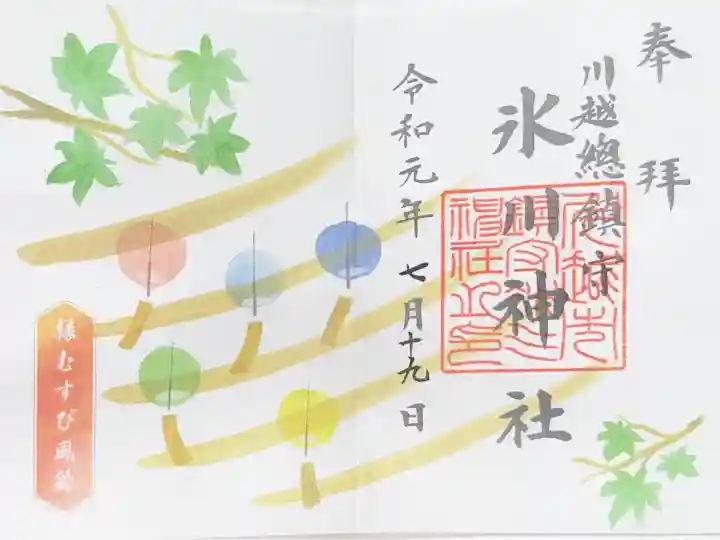 奉拜
川越總鎮守
氷川神社
令和元年七月十九日
縁むすび風鈴